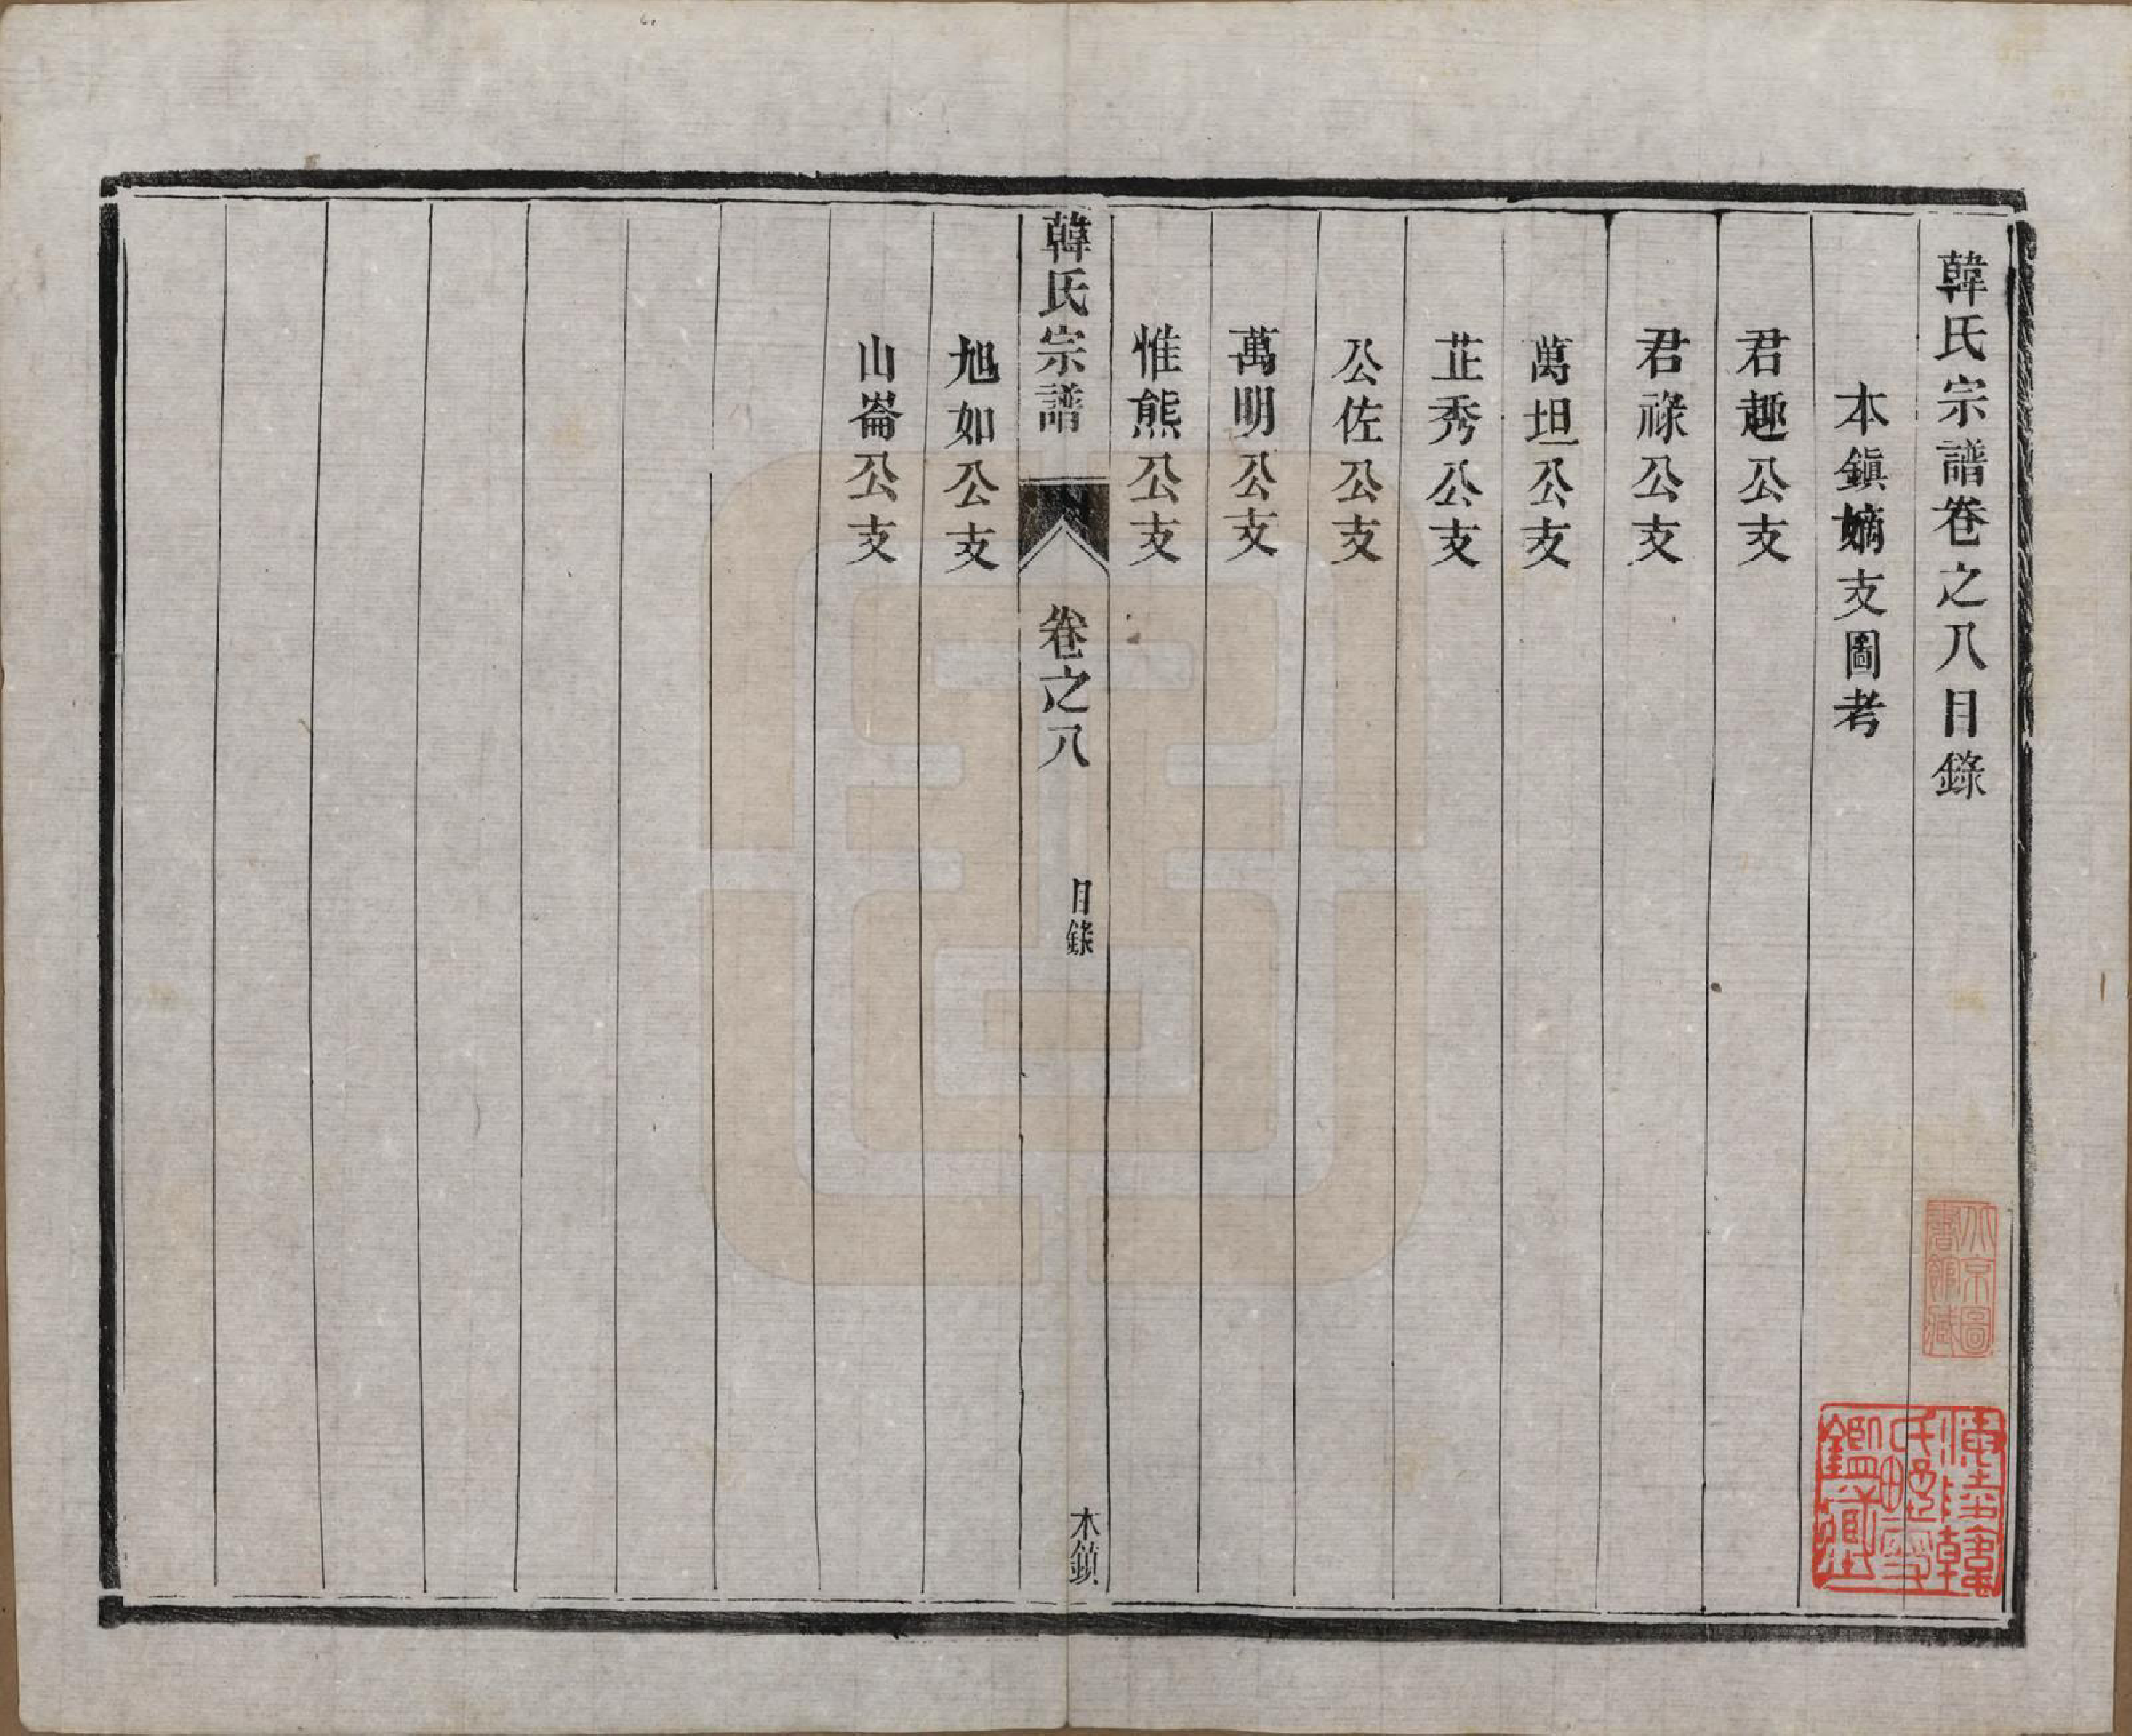 韓氏宗譜卷之八目錄
本鎭嫡支圖考
君趣公支
君祿公支
萬坦公支
芷秀公支
公佐公支
萬明公支
惟熊公支
韓氏宗譜
卷之八
目錄
木鎮
旭如公支
山崙公支
北京圖
書館藏